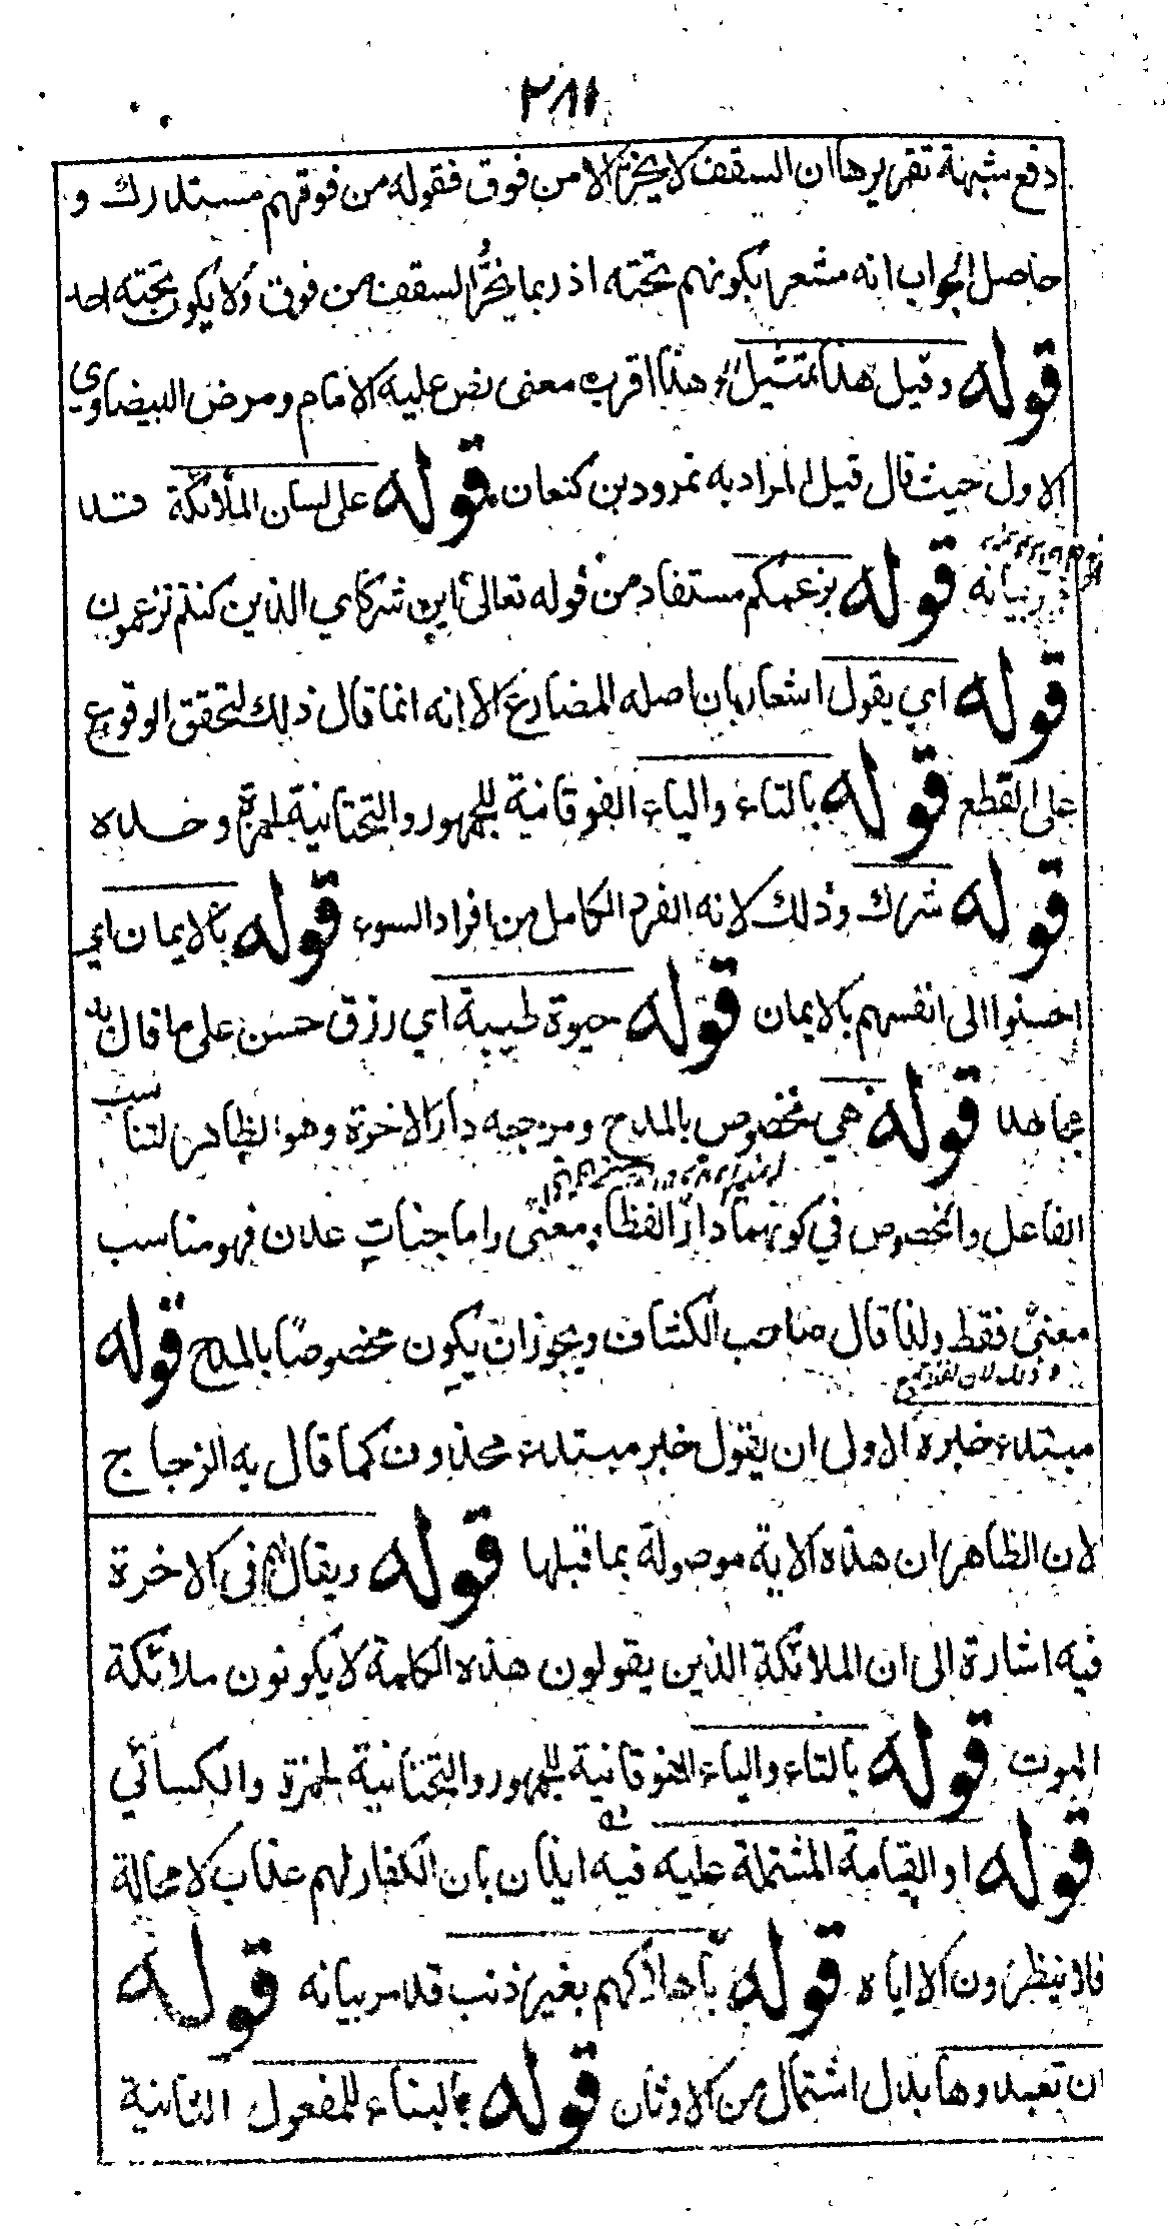 ٢٨١
دفع شبهة تقريرها ان السقف لا يخر الا من فوق فقوله من فوقهم مستدرك و
حاصل الجواب انه مشعر بكونهم تحته اذ ربما يخرّ السقف من فوق ولا يكون تحته احد
قوله وقيل هذا تمثيل الخ وهذا اقرب معنى نص عليه الامام ومرض البيضاوي
الاول حيث قال قيل المراد به نمرود بن كنعان قوله على لسان الملائكة قد
مر بيانه قوله بزعمكم مستفاد من قوله تعالى اين شركاي الذين كنتم تزعمون
قوله اي يقول اشعار بان اصله المضارع الا انه انما قال ذلك لتحقق الوقوع
على القطع قوله بالتاء والياء الفوقانية للجمهور والتحتانية لحمزة وحده
قوله شرك وذلك لانه الفرد الكامل من افراد السوء قوله بالايمان اي
احسنوا الى انفسهم بالايمان قوله حيوة طيبة اي رزق حسن على ما قال به
مجاهد قوله هي مخصوص بالمدح ومرجعه دار الاخرة وهو الظاهر لتناسب
الفاعل والمخصوص في كونهما دار الفظا ومعنى واما جنات عدن فهو مناسب
معنىً فقط ولذا قال صاحب الكشاف ويجوز ان يكون مخصوصًا بالمدح قوله
مبتدء خبره الاولى ان يقول خبر مبتدء محذوف كما قال به الزجاج
لان الظاهر ان هذه الاية موصولة بما قبلها قوله ويقال لهم في الاخرة
فيه اشارة الى ان الملائكة الذين يقولون هذه الكلمة لا يكونون ملائكة
الموت قوله بالتاء والياء الفوقانية للجمهور والتحتانية لحمزة والكسائي
قوله او القيامة المشتملة عليه فيه ايذان بان الكفار لهم عذاب لا محالة
فلا ينظرون الا اياه قوله باهلاكهم بغير ذنب قد مر بيانه قوله
ان تعبدوها بدل اشتمال من الاوثان قوله بالبناء للمفعول الثانية